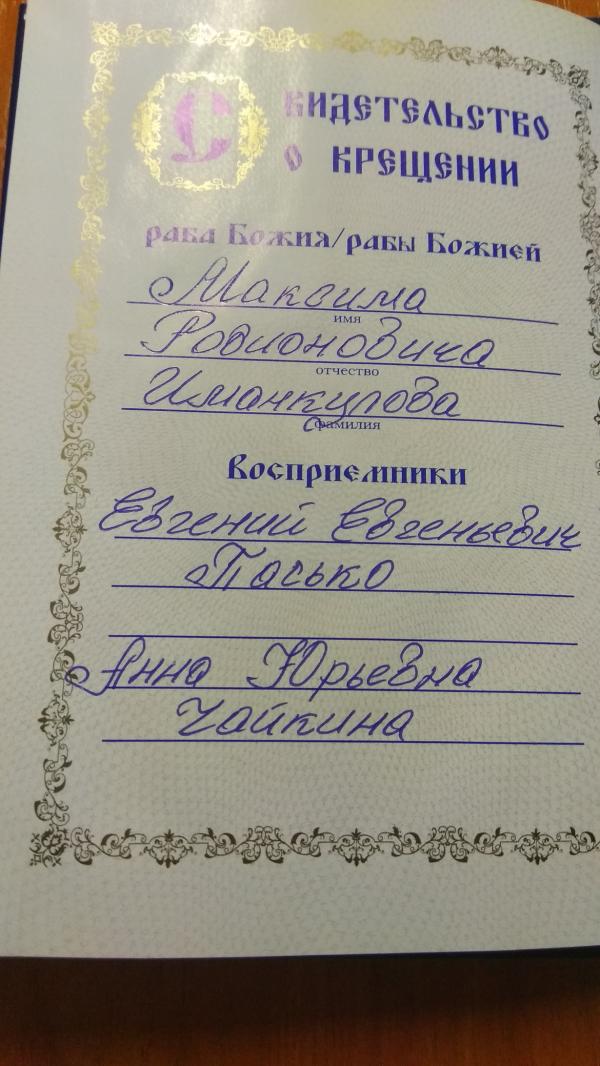 Свидетельство
о крещении
раба Божия/рабы Божией
Максима
имя
Родионовича
отчество
Иманкулова
фамилия
Восприемники
Евгений Евгеньевич
Пасько
Анна Юрьевна
Чайкина